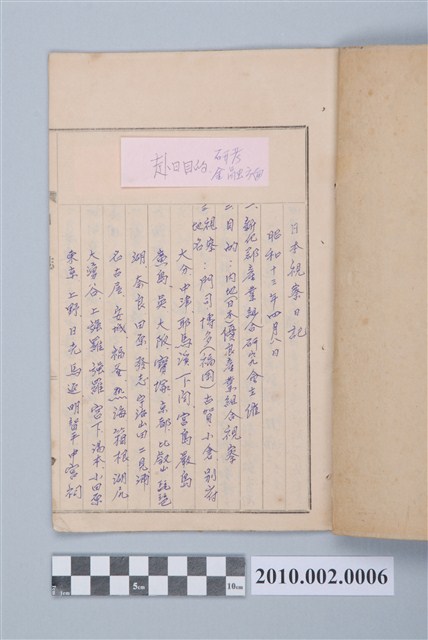 赴日目的 研考
金融方面
日本視察日記
昭和十二年四月八日
一. 新化郡產業組合研究會主催
二. 目的：內地(日本)優良產業組合視察
三. 視察地名：門司 博多(福岡) 古賀 小倉 別府
大分 中津 耶馬溪 下関 宮島 嚴島
廣島 吳 大阪 寶塚 京都 比叡山 琵琶
湖 奈良 田原 宇治山田 二見浦
名古屋 安城 福谷 熱海 箱根 湖尻
大涌谷 上強羅 強羅 宮下 湯本 小田原
東京 上野 日光 馬返 明智平 中宮祠
1cm
5cm
10cm
2010.002.0006